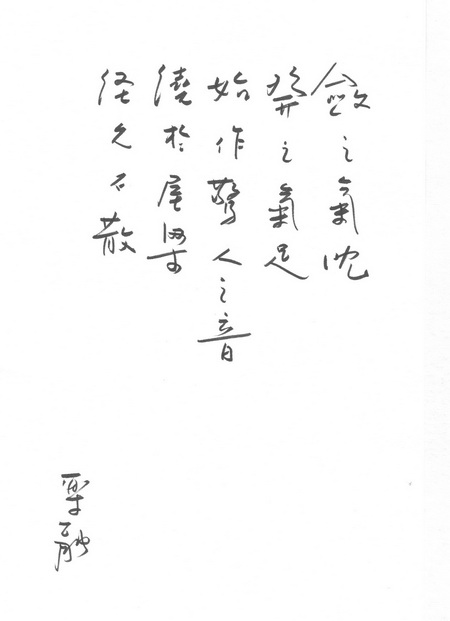 斂之氣沈
発之氣足
始作驚人之音
繞於屋梁
経久不散
融